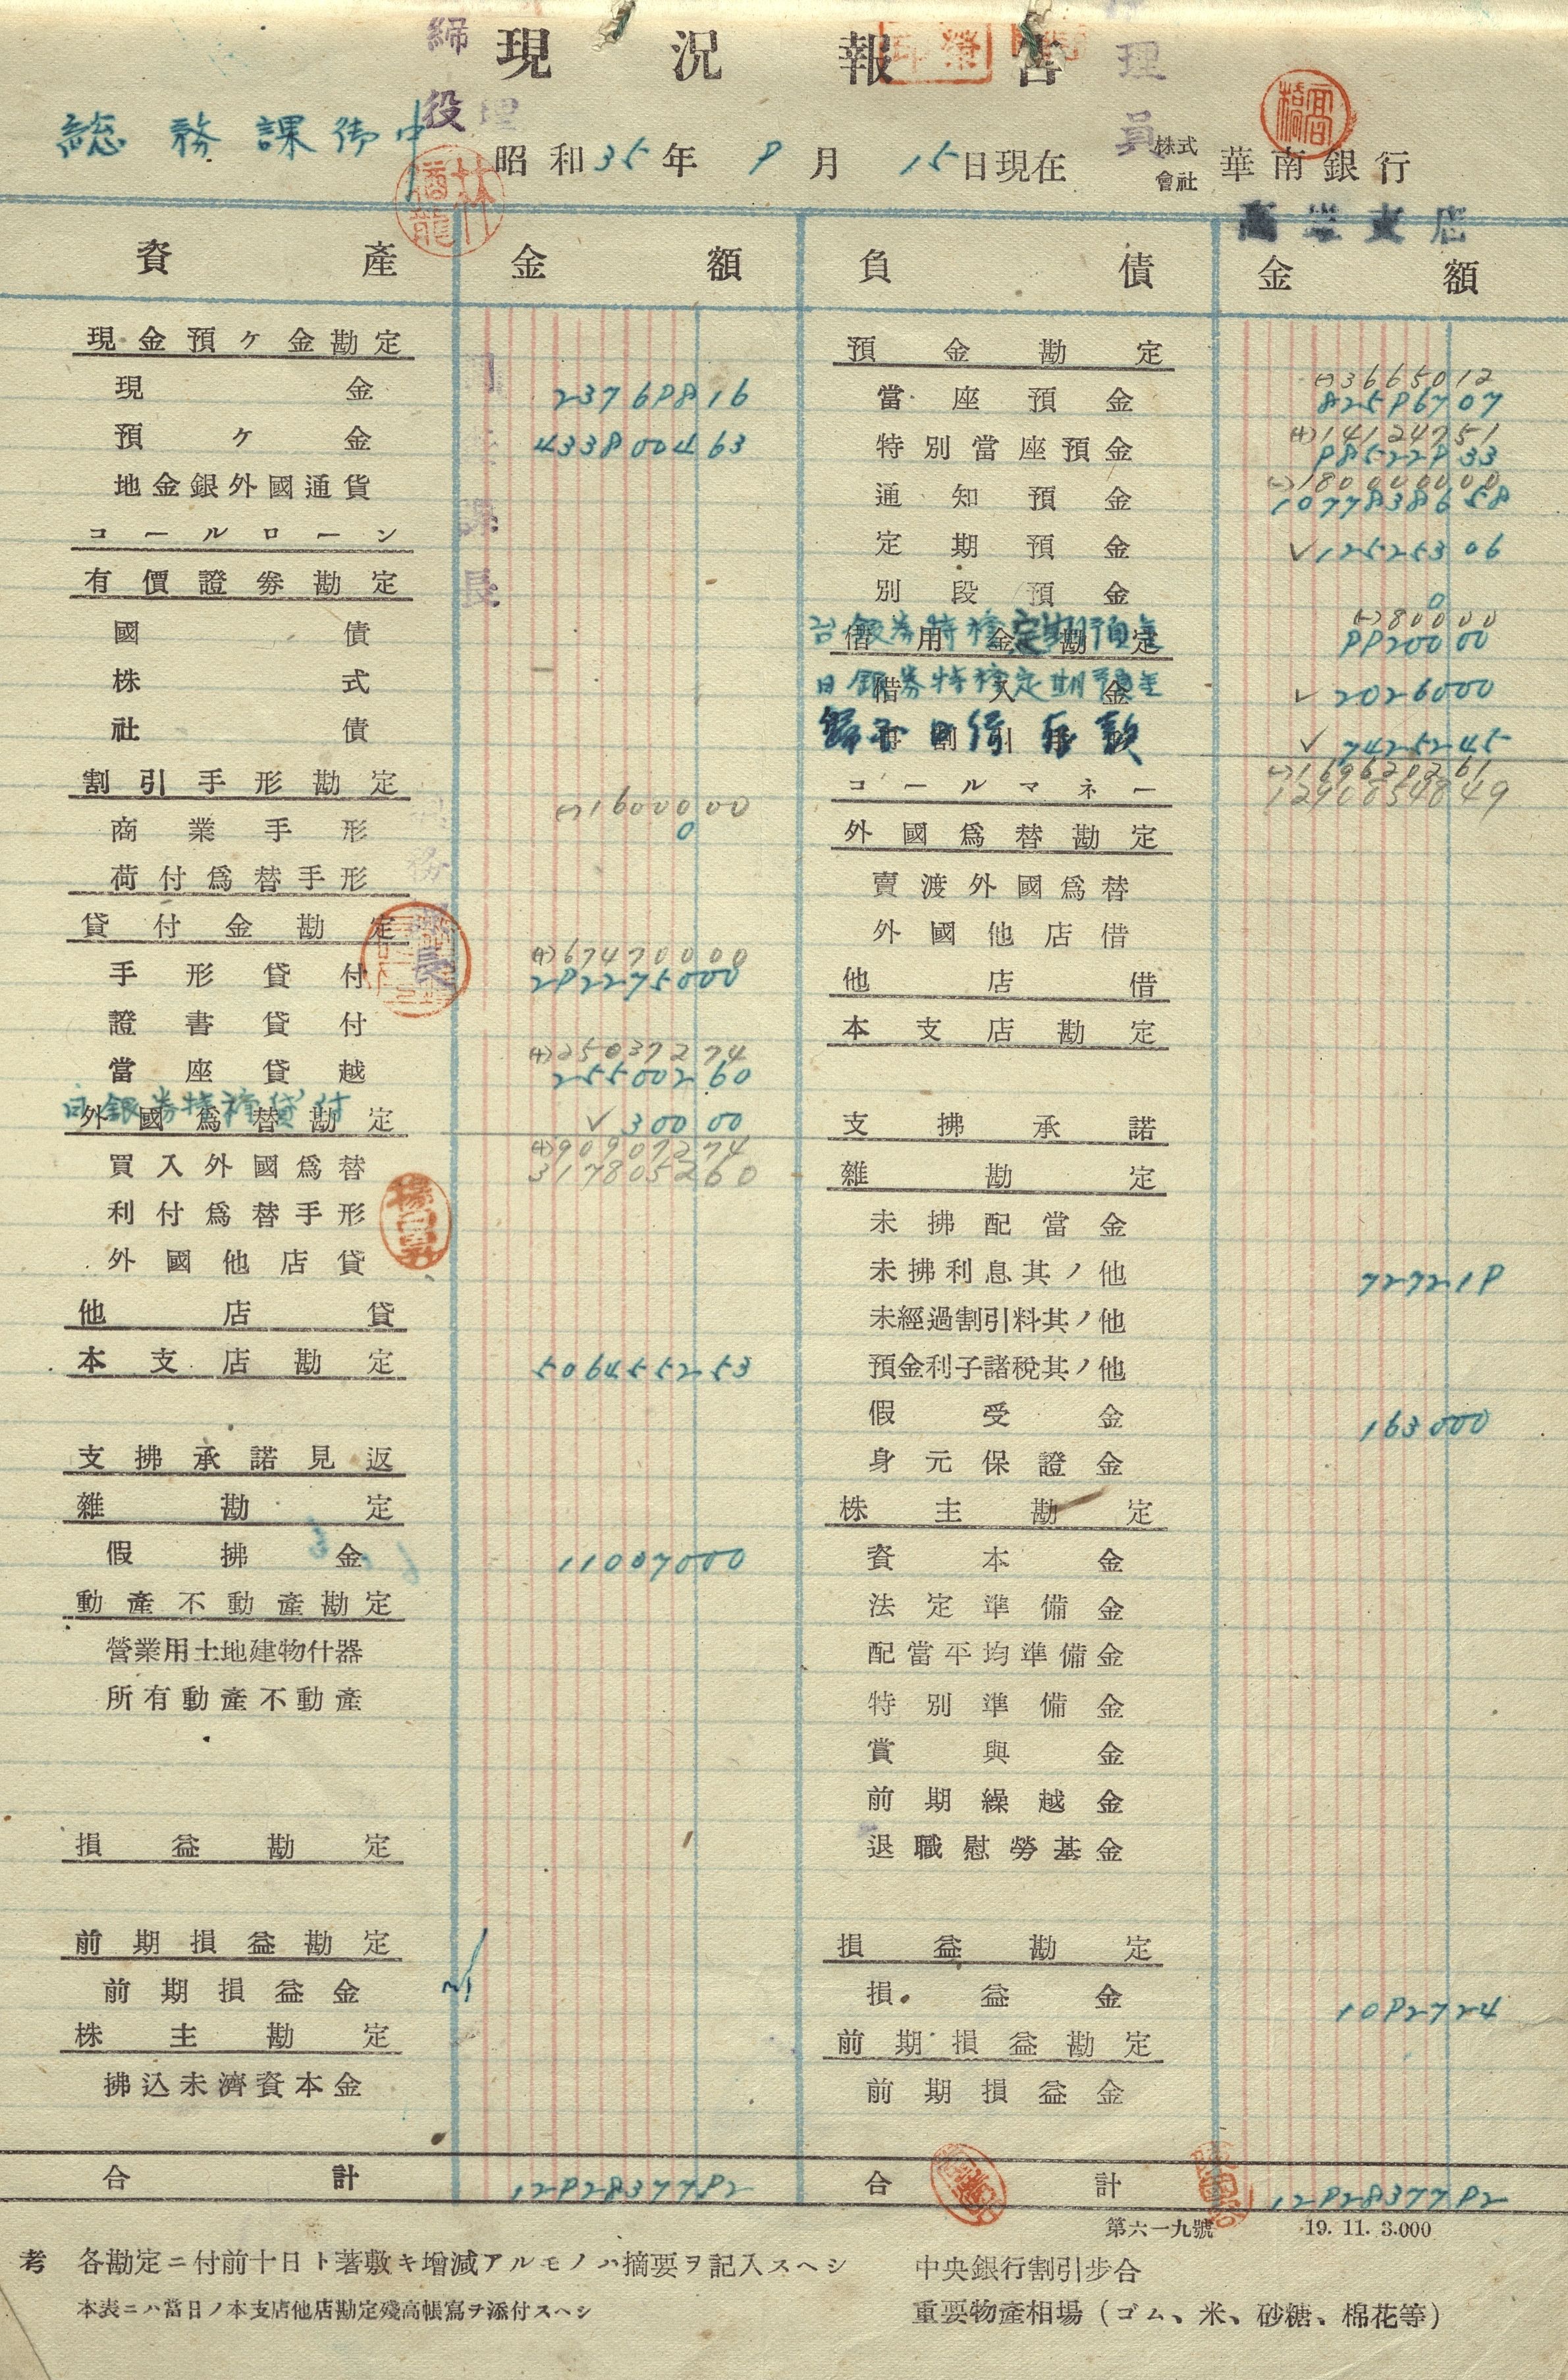 現況報告
総務課御中
昭和35年9月15日現在
株式會社 華南銀行
高雄支店
資產 金額 負債 金額
現金預ヶ金勘定
現金 237698816
預ヶ金 433800463
地金銀外國通貨
コールローン
有價證券勘定
國債
株式
社債
割引手形勘定
(-)1600000
商業手形 0
荷付爲替手形
貸付金勘定
(+)67470000
手形貸付 292275000
證書貸付
(+)25037274
當座貸越 25500260
外國爲替勘定
日銀券特種貸付 ✓30000
(+)90907274
317805260
買入外國爲替
利付爲替手形
外國他店貸
他店貸
本支店勘定 506455253
支拂承諾見返
雜勘定
假拂金 11007000
動產不動產勘定
營業用土地建物什器
所有動產不動產
損益勘定
前期損益勘定
前期損益金
株主勘定
拂込未濟資本金
合計 1292837792
預金勘定
(-)3665012
當座預金 82596707
(+)14124751
特別當座預金 98522933
(-)180000000
通知預金 1077838658
定期預金 ✓12525306
別段預金 0
借用金勘定
(-)80000
台銀券特種定期預金 9920000
借入金
日銀券特種定期預金 ✓2026000
✓7425245
(-)169620261
1290854849
コールマネー
外國爲替勘定
賣渡外國爲替
外國他店借
他店借
本支店勘定
支拂承諾
雜勘定
未拂配當金
未拂利息其ノ他 727219
未經過割引料其ノ他
預金利子諸稅其ノ他
假受金 163000
身元保證金
株主勘定
資本金
法定準備金
配當平均準備金
特別準備金
賞與金
前期繰越金
退職慰勞基金
損益勘定
損益金 1092724
前期損益勘定
前期損益金
合計 1292837792
第六一九號 19. 11. 3.000
考 各勘定ニ付前十日ト著敷キ增減アルモノハ摘要ヲ記入スヘシ
本表ニハ當日ノ本支店他店勘定殘高帳寫ヲ添付スヘシ
中央銀行割引步合
重要物產相場(ゴム、米、砂糖、棉花等)